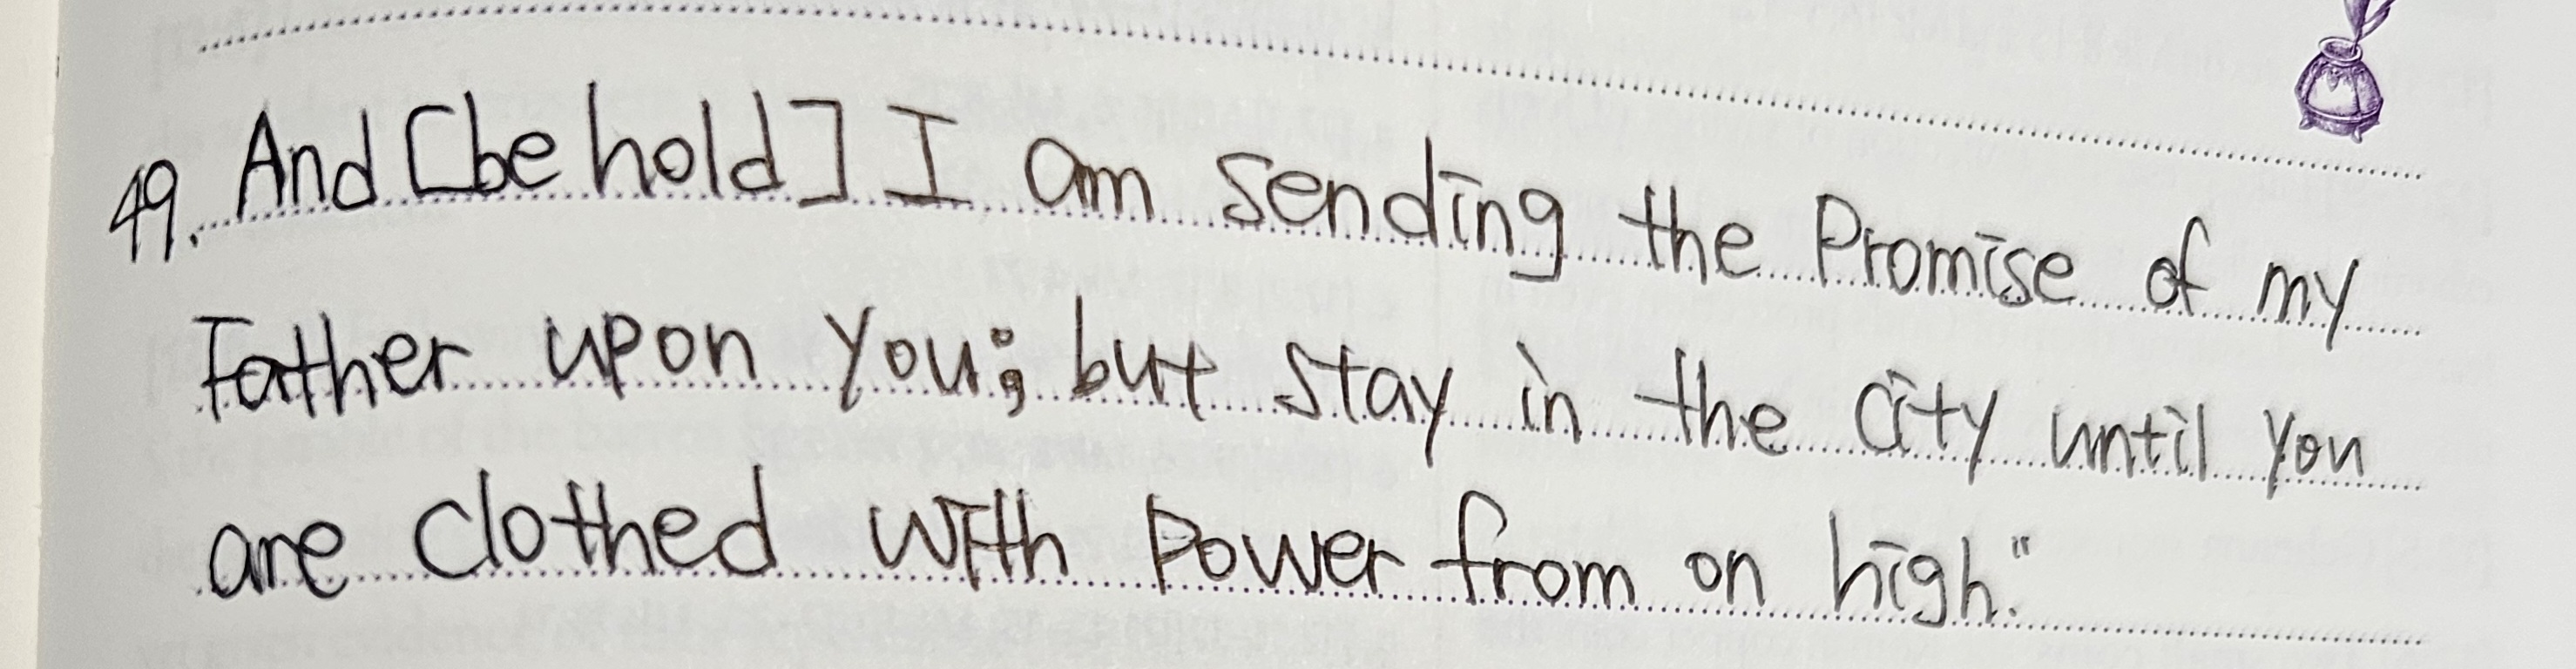 49. And [be hold] I am sending the Promise of my
Father upon you; but stay in the city until you
are clothed with Power from on high."